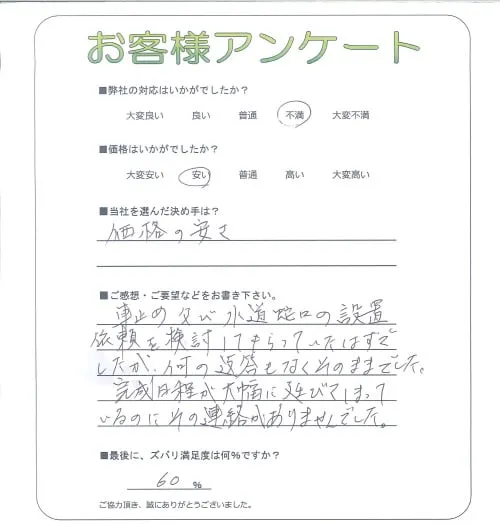 お客様アンケート
■弊社の対応はいかがでしたか？
大変良い 良い 普通 不満 大変不満
■価格はいかがでしたか？
大変安い 安い 普通 高い 大変高い
■当社を選んだ決め手は？
価格の安さ
■ご感想・ご要望などをお書き下さい。
車止め及び水道蛇口の設置
依頼を検討してもらっていたはずで
したが、何の返答もなくそのままでした。
完成日程が大幅に延びてしまって
いるのにその連絡がありませんでした。
■最後に、ズバリ満足度は何%ですか？
60 %
ご協力頂き、誠にありがとうございました。